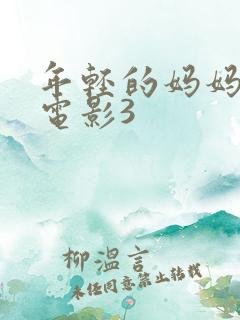 年轻的妈妈
电影3
柳溫言
未经同意禁止转载